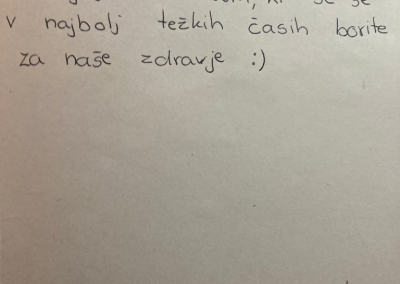 v najbolj težkih časih borite
za naše zdravje :)